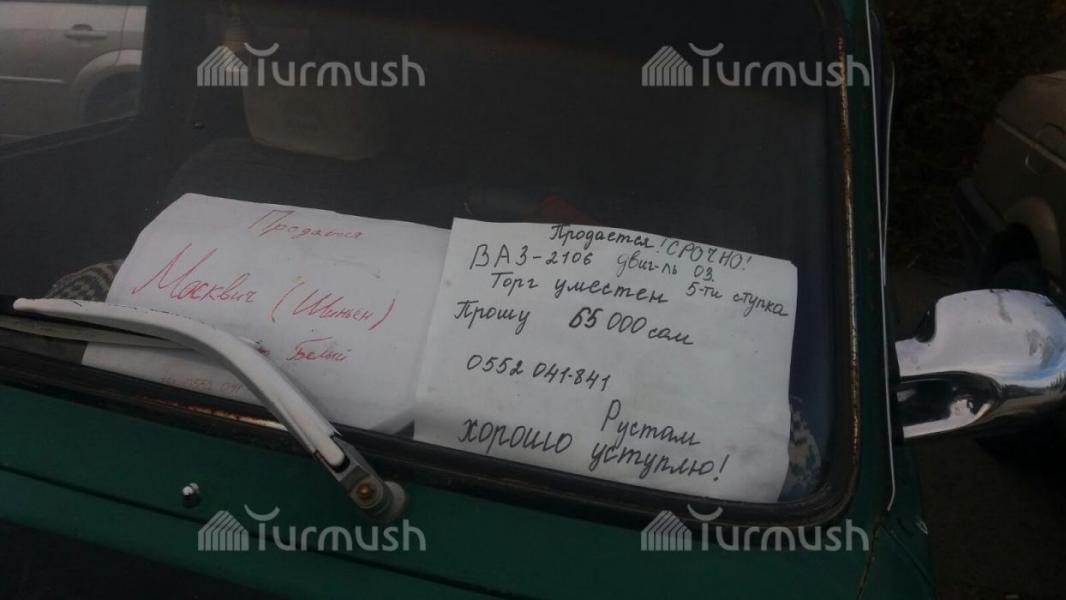 Turmush
Turmush
Продается
Москвич (Шиньен)
Белый
0552 041
Продается! СРОЧНО!
ВАЗ-2106 двиг-ль 03.
5-ти ступка
Торг уместен
Прошу 65 000 сом
0552 041-841
Рустам
хорошо уступлю!
Turmush
Turmush